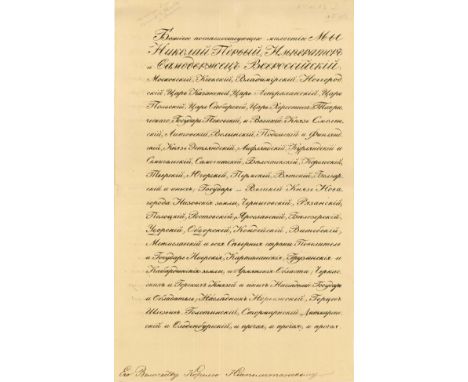 Божіею поспѣшествующею милостію Мы
Николай Первый, Императоръ
и Самодержецъ Всероссійскій,
Московскій, Кіевскій, Владимірскій, Новгород
скій, Царь Казанскій, Царь Астраханскій, Царь
Польскій, Царь Сибирскій, Царь Херсониса Таври
ческаго, Государь Псковскій, и Великій Князь Смолен
скій, Литовскій, Волынскій, Подольскій и Финлянд
скій, Князь Эстляндскій, Лифляндскій, Курляндскій и
Семигальскій, Самогитскій, Бѣлостокскій, Корельскій,
Тверскій, Югорскій, Пермскій, Вятскій, Болгар
скій и иныхъ; Государь и Великій Князь Нова
города Низовскія земли, Черниговскій, Рязанскій,
Полоцкій, Ростовскій, Ярославскій, Бѣлоозерскій,
Удорскій, Обдорскій, Кондійскій, Витебскій,
Мстиславскій и всея Сѣверныя страны Повелитель
и Государь Иверскія, Карталинскія, Грузинскія и
Кабардинскія земли, и Арменскія Области; Черкас
скихъ и Горскихъ Князей и иныхъ Наслѣдный Государь
и Обладатель; Наслѣдникъ Норвежскій, Герцогъ
Шлезвигъ Голстинскій, Стормарнскій, Дитмарсен
скій и Ольденбургскій, и прочая, и прочая, и прочая
Его Величеству Королю Неаполитанскому